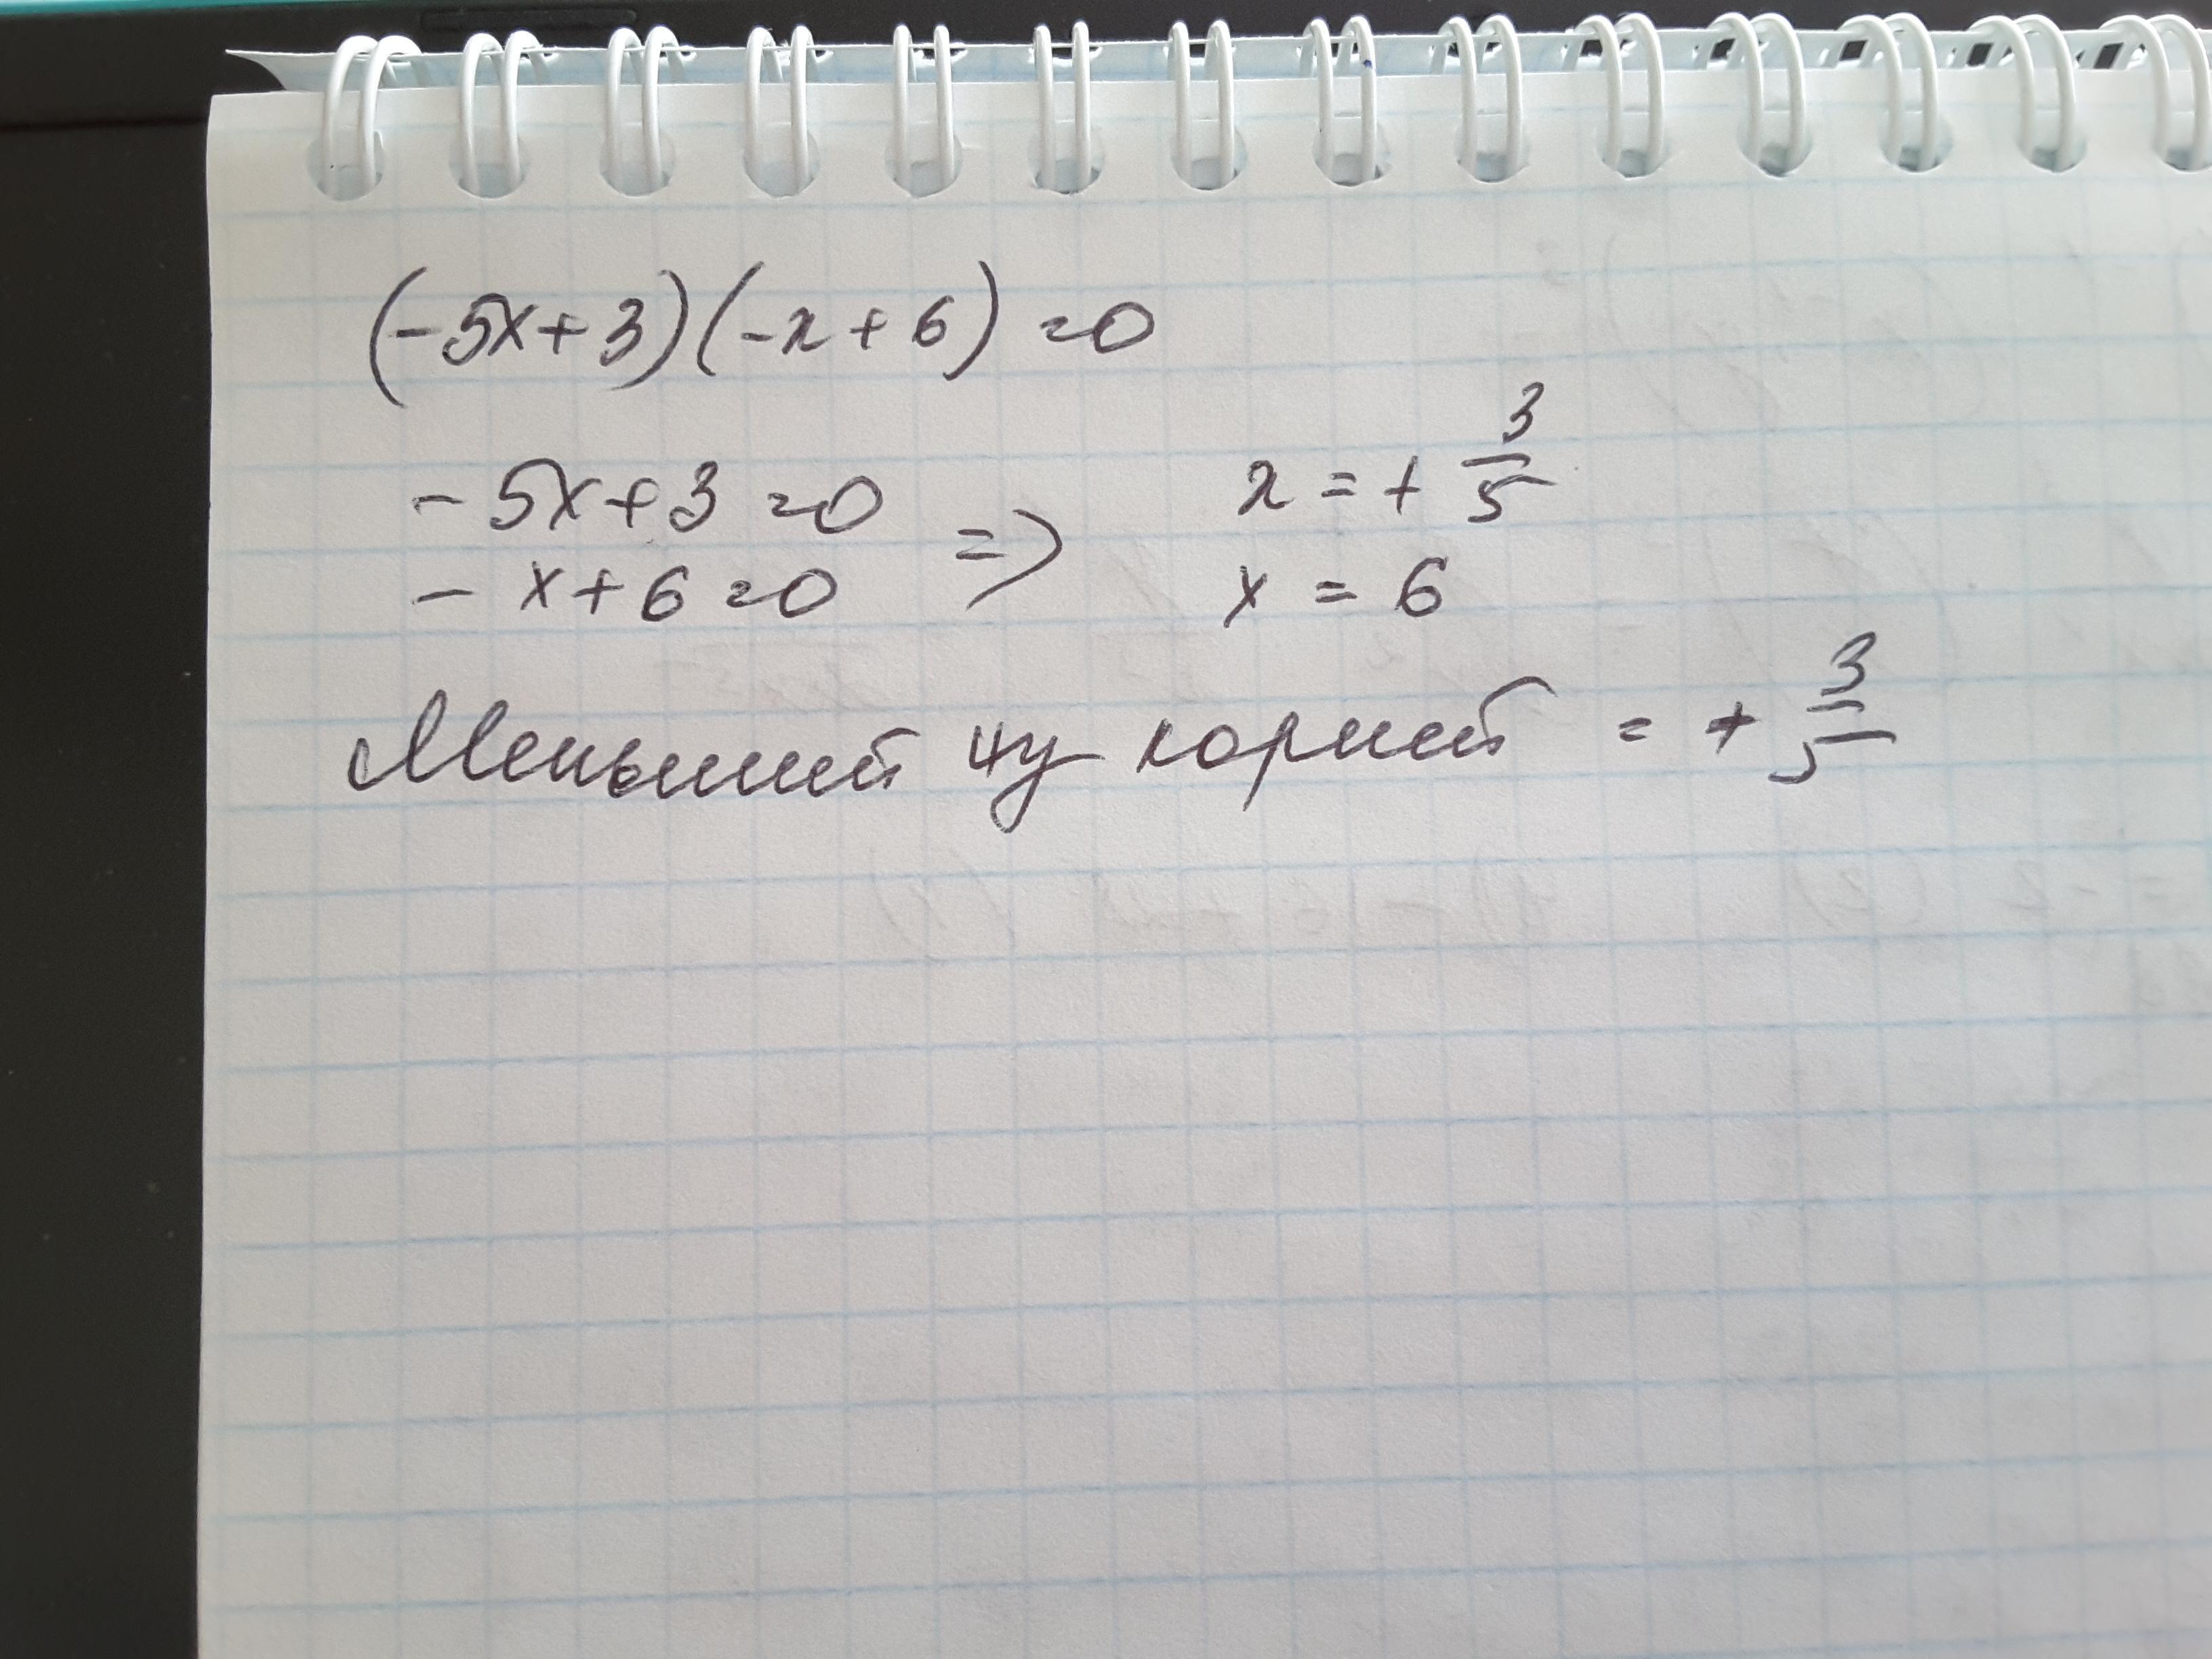 (-5x+3)(-x+6)=0
-5x+3=0 => x=+3/5
-x+6=0 x=6
Меньший из корней = +3/5